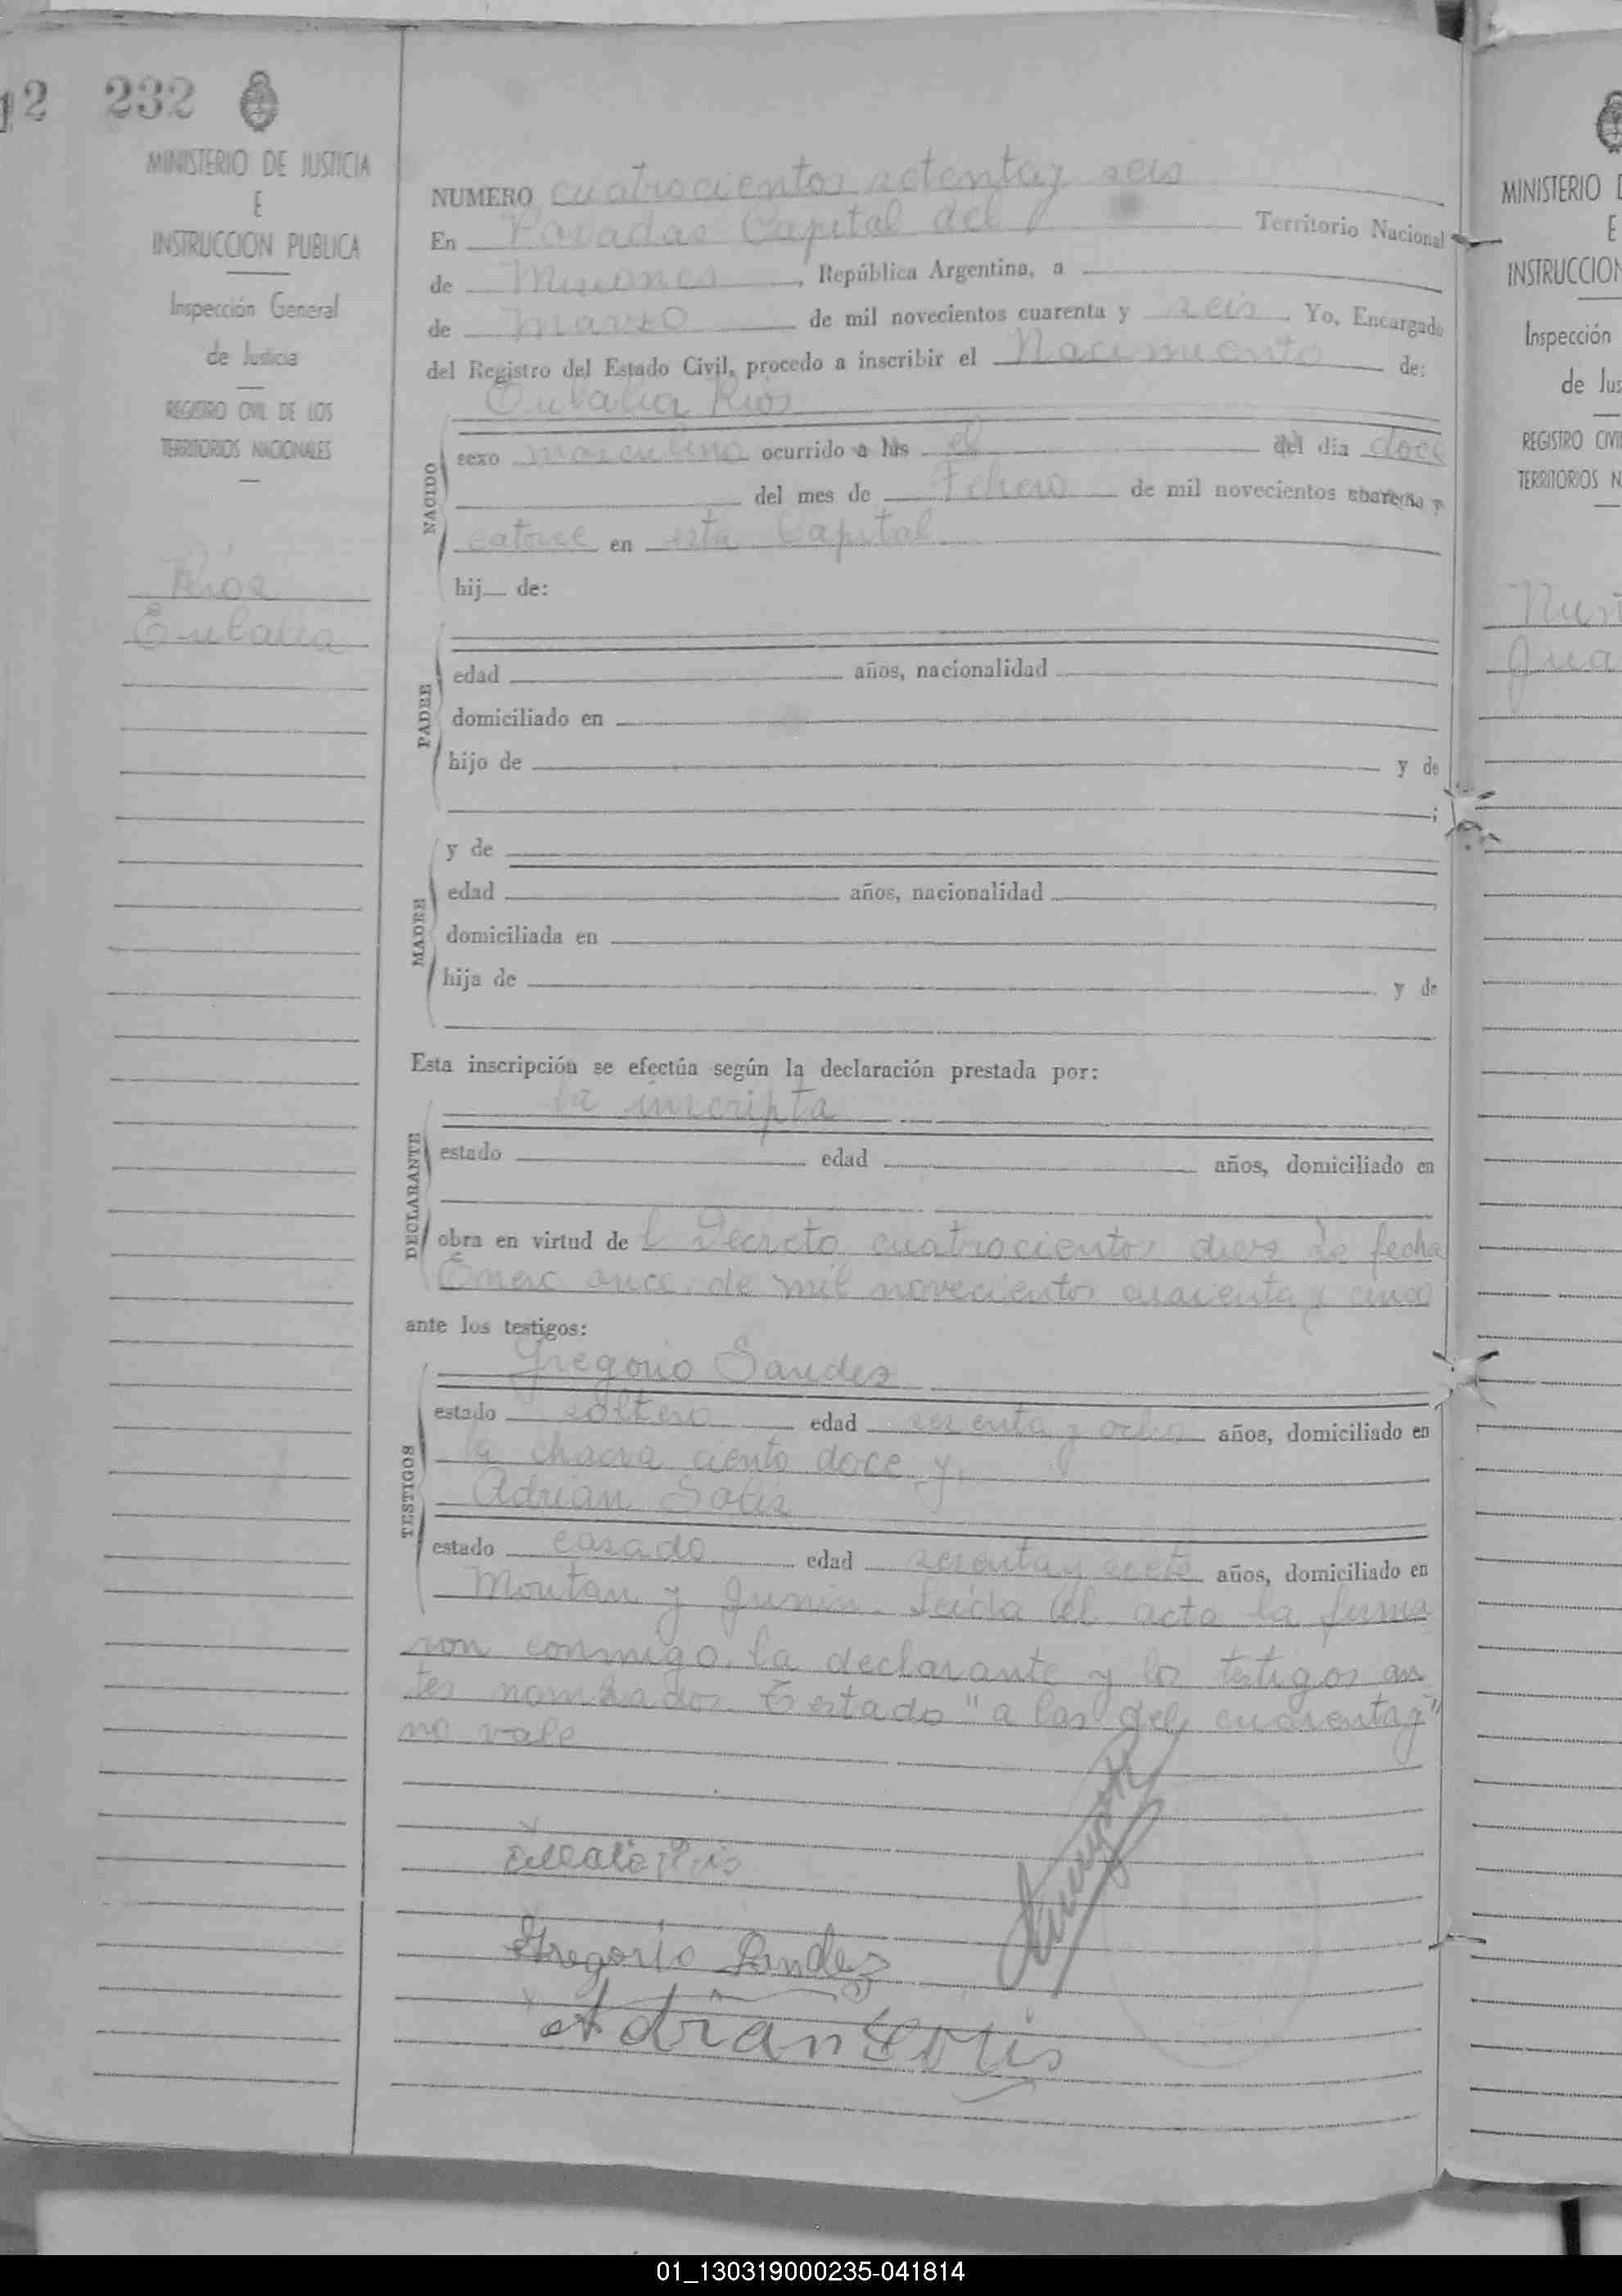 12 232
MINISTERIO DE JUSTICIA
E
INSTRUCCION PUBLICA
Inspección General
de Justicia
REGISTRO CIVIL DE LOS
TERRITORIOS NACIONALES
Rios
Eulalia
NUMERO cuatrocientos setenta y seis
En Posadas Capital del Territorio Nacional
de Misiones, República Argentina, a
de Marzo de mil novecientos cuarenta y seis. Yo, Encargado
del Registro del Estado Civil, procedo a inscribir el Nacimiento de:
Eulalia Rios
NACIDO
sexo masculino ocurrido a las el del día doce
del mes de Febrero de mil novecientos cuarenta y
catorce en esta Capital
hij de:
PADRE
edad años, nacionalidad
domiciliado en
hijo de y de
;
MADRE
y de
edad años, nacionalidad
domiciliada en
hija de y de
Esta inscripción se efectúa según la declaración prestada por:
DECLARANTE
la inscripta
estado edad años, domiciliado en
obra en virtud del Decreto cuatrocientos diez de fecha
Enero once de mil novecientos cuarenta y cinco
ante los testigos:
TESTIGOS
Gregorio Sandez
estado soltero edad sesenta y ocho años, domiciliado en
la chacra ciento doce y
Adrian Solis
estado casado edad sesenta y siete años, domiciliado en
y Junin. Leida el acta la firma
ron conmigo, la declarante y los testigos an
tes nombrados. Testado "a las del cuarenta y"
no vale
Eulalia Rios
Gregorio Sandez
Adrian Solis
MINISTERIO D
E
INSTRUCCION
Inspección
de Jus
REGISTRO CIVI
TERRITORIOS N
Jua
01_130319000235-041814